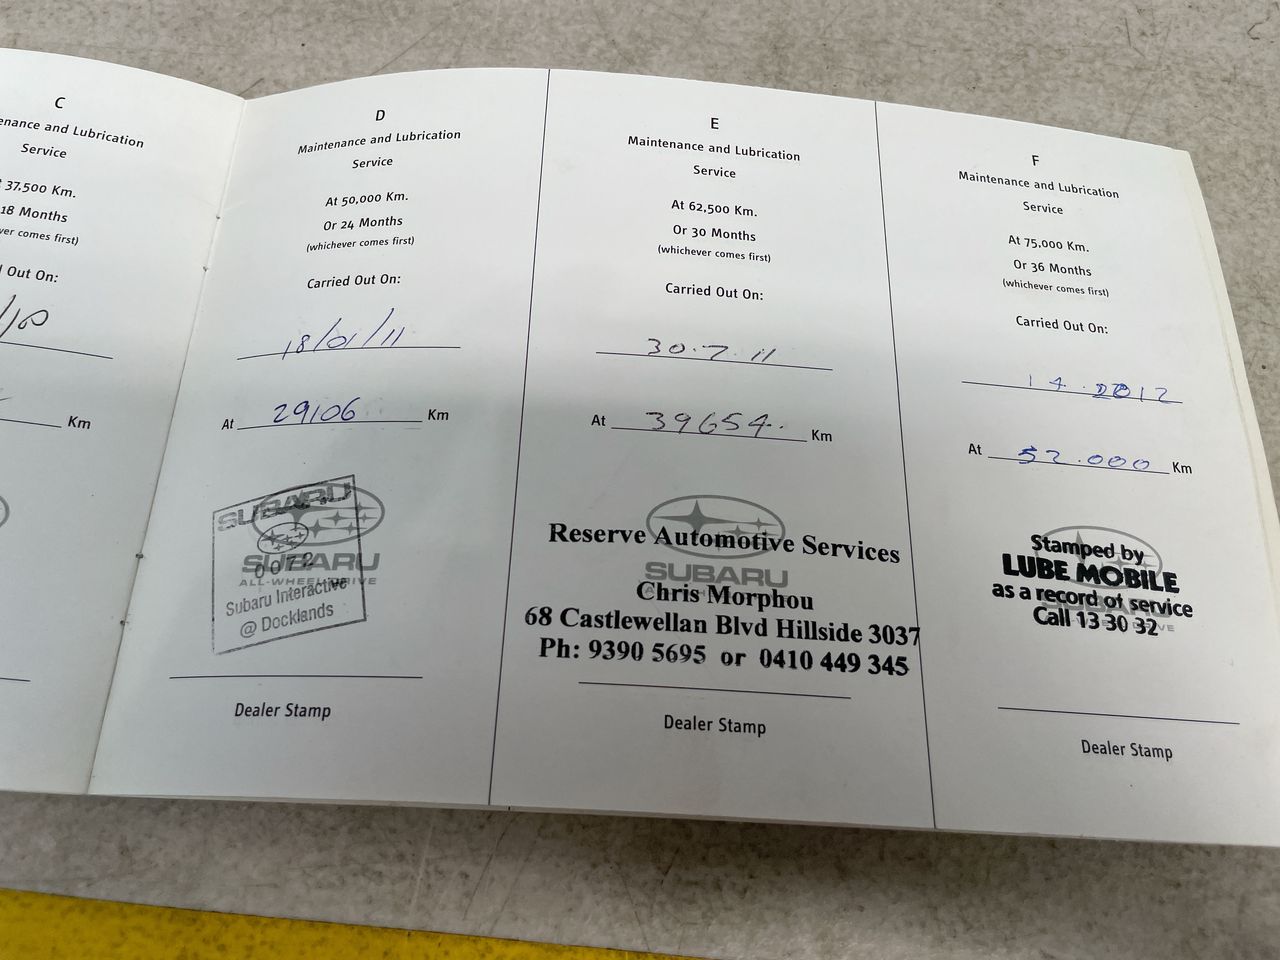 C
enance and Lubrication
Service
37,500 Km.
18 Months
ver comes first)
Out On:
/10
Km
D
Maintenance and Lubrication
Service
At 50,000 Km.
Or 24 Months
(whichever comes first)
Carried Out On:
18/01/11
At 29106 Km
SUBARU
0072
Subaru Interactive
@ Docklands
SUBARU
ALL-WHEEL DRIVE
Dealer Stamp
E
Maintenance and Lubrication
Service
At 62,500 Km.
Or 30 Months
(whichever comes first)
Carried Out On:
30.7.11
At 39654. Km
Reserve Automotive Services
SUBARU
Chris Morphou
68 Castlewellan Blvd Hillside 3037
Ph: 9390 5695 or 0410 449 345
Dealer Stamp
F
Maintenance and Lubrication
Service
At 75,000 Km.
Or 36 Months
(whichever comes first)
Carried Out On:
14. 2012
At 52.000 Km
Stamped by
LUBE MOBILE
as a record of service
Call 13 30 32
Dealer Stamp